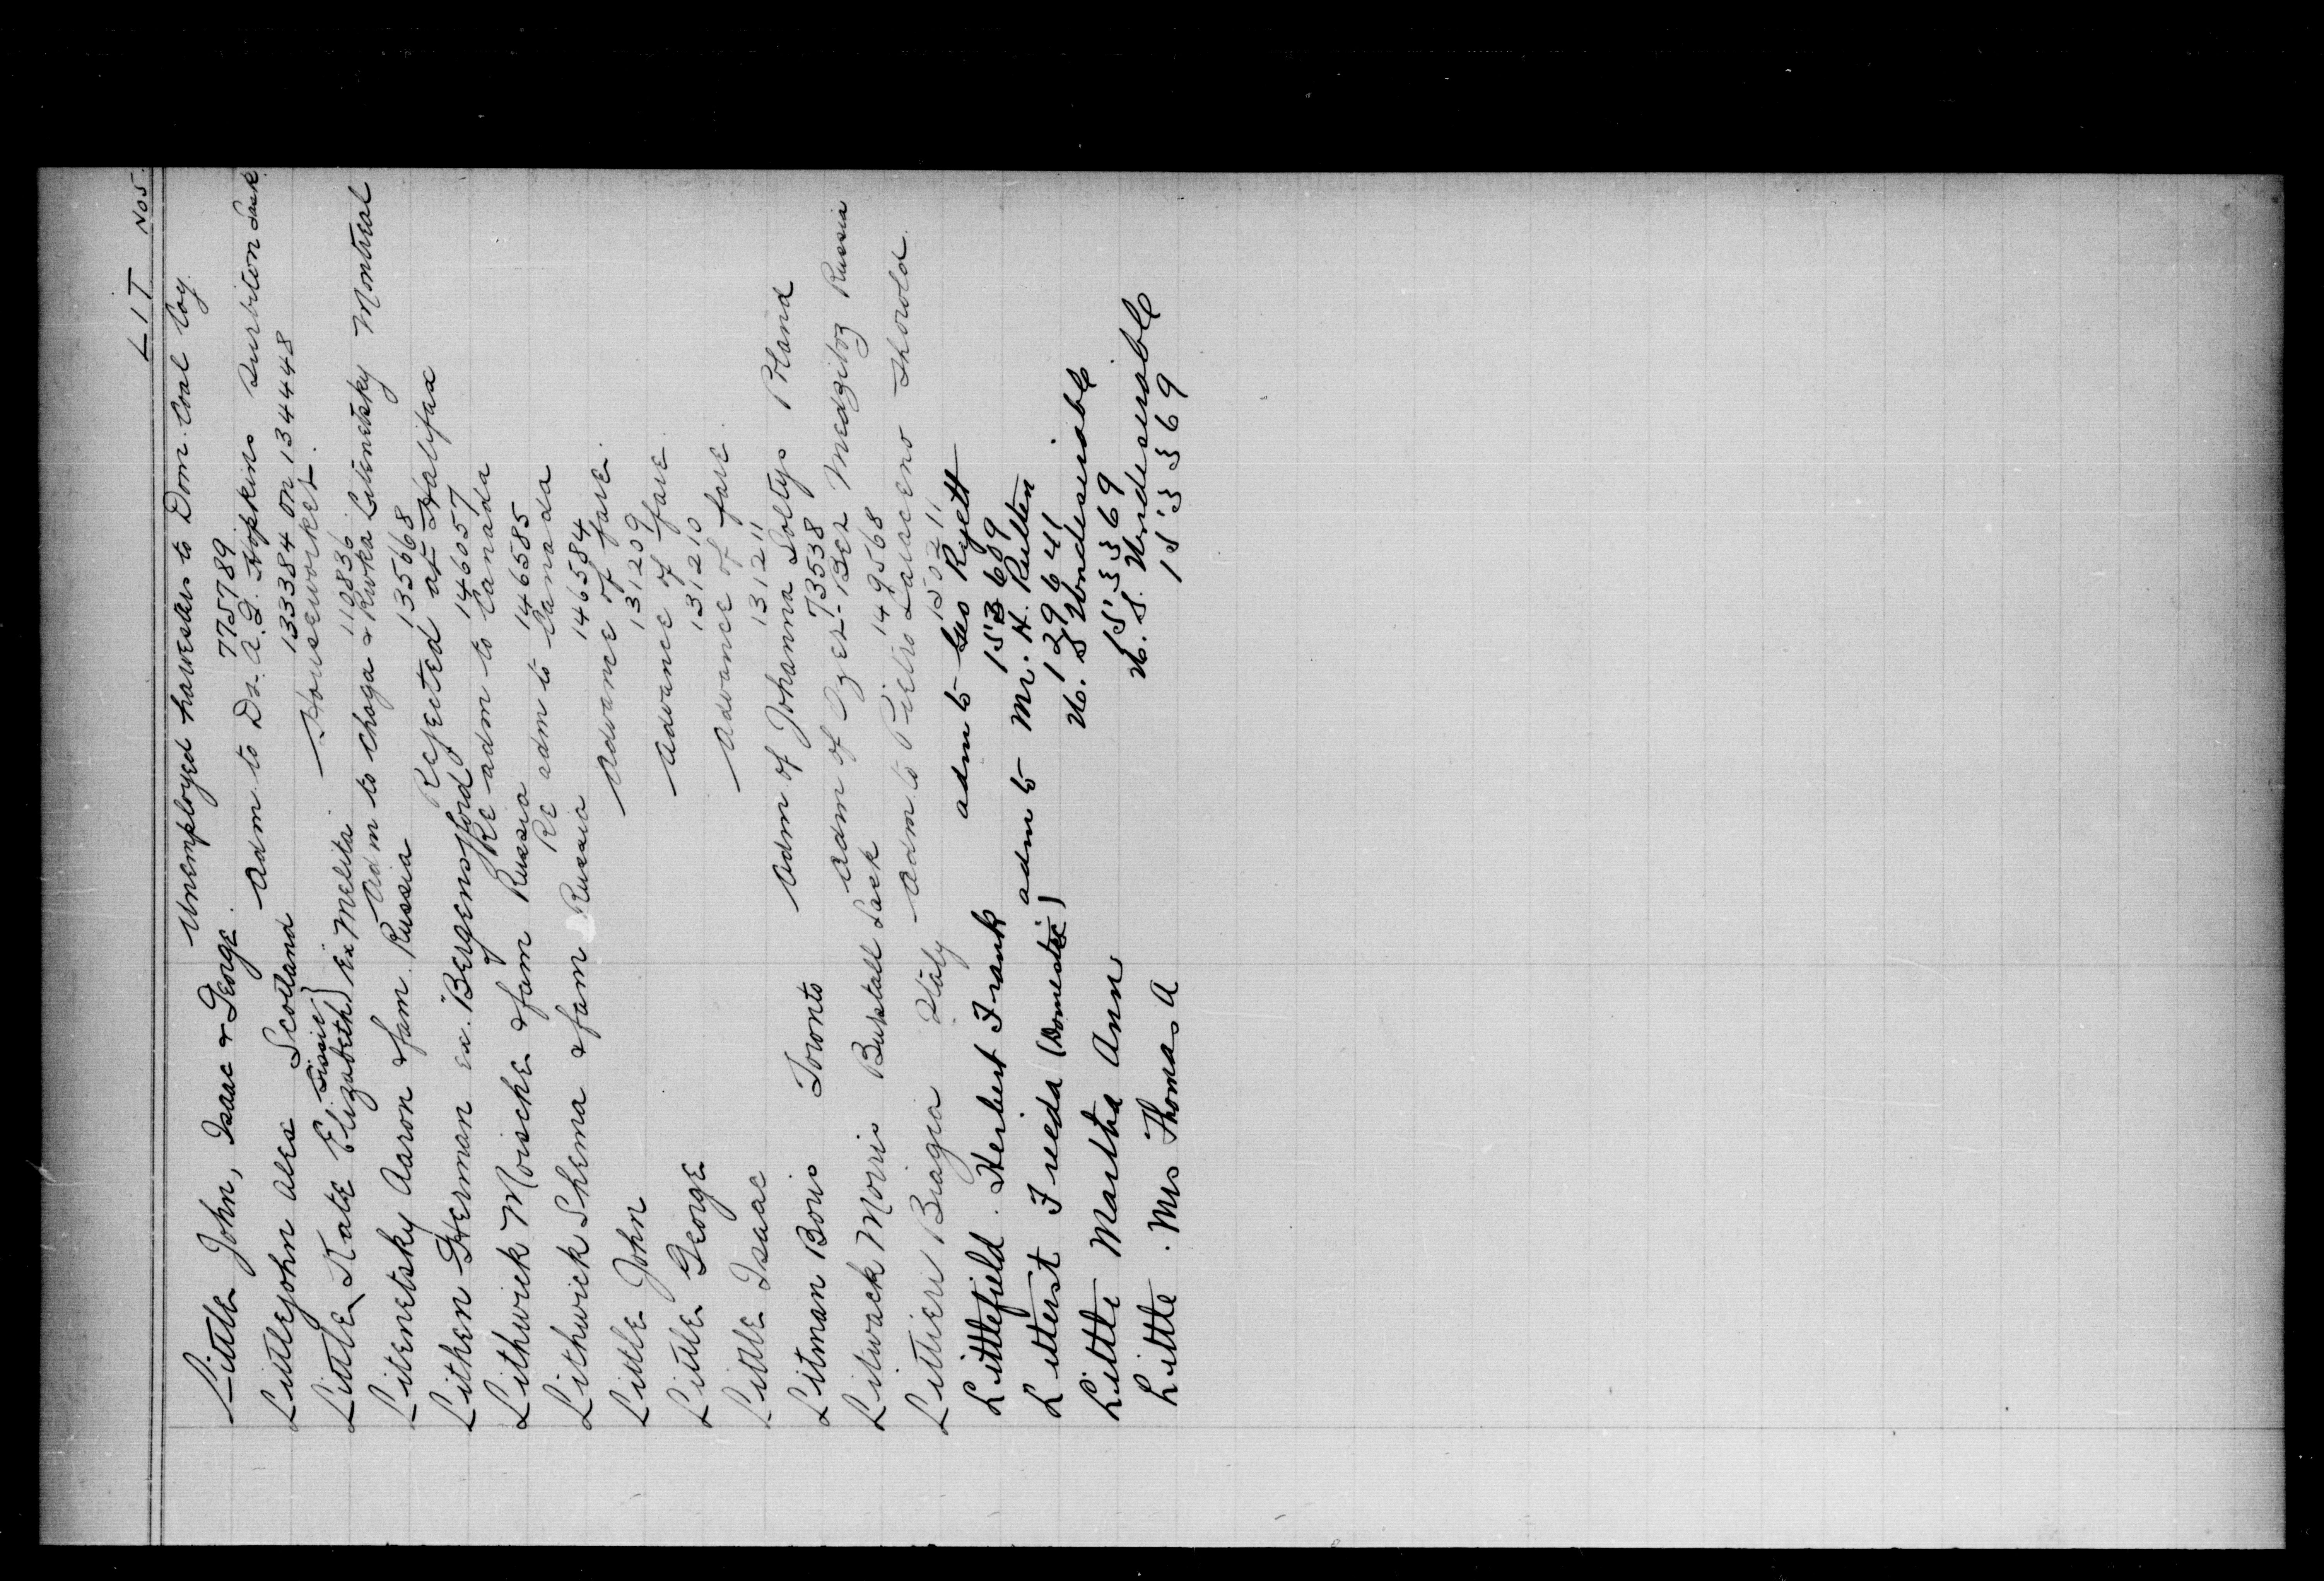 LIT Nos.
Little John, Isaac & George. Unemployed harvesters to Dom. Coal Coy.
775789
Littlejohn Alex Scotland Adm to Dr. A.G. Hopkins Surbiton Sask
133384 on 134448
Little, Kate Elizabeth Sissie } ex Melita. Houseworker.
110836
Litenetsky Aaron & fam. Russia Adm to Chaga & Rivka Litenetsky Montreal
135668
Lithen Herman ex. Bergensfjord Rejected at Halifax
146057
Lithwick Moische & fam Russia Re-adm to Canada
146585
Lithwick Shema & fam Russia Re adm to Canada
146584
Little John Advance of fare.
131209
Little George Advance of fare.
131210
Little Isaac Advance of fare.
131211
Litman Boris Toronto Adm of Johanna Soltys Poland
73538
Litwack Morris Sask Adm of Medziboz Russia
149568
Littieri Biagia Italy Adm to Pietro Thorold.
150211
Littlefield. Herbert Frank adm to Geo Ryett
153609
Litterst Freeda (Domestic) adm to Mr. H. Rutten
129641
Little Martha Ann U.S Undesirable
153369
Little. Mrs Thomas A U.S. Undesirable
153369